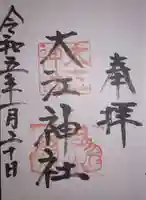 奉拝
大江神社
令和五年一月二十日